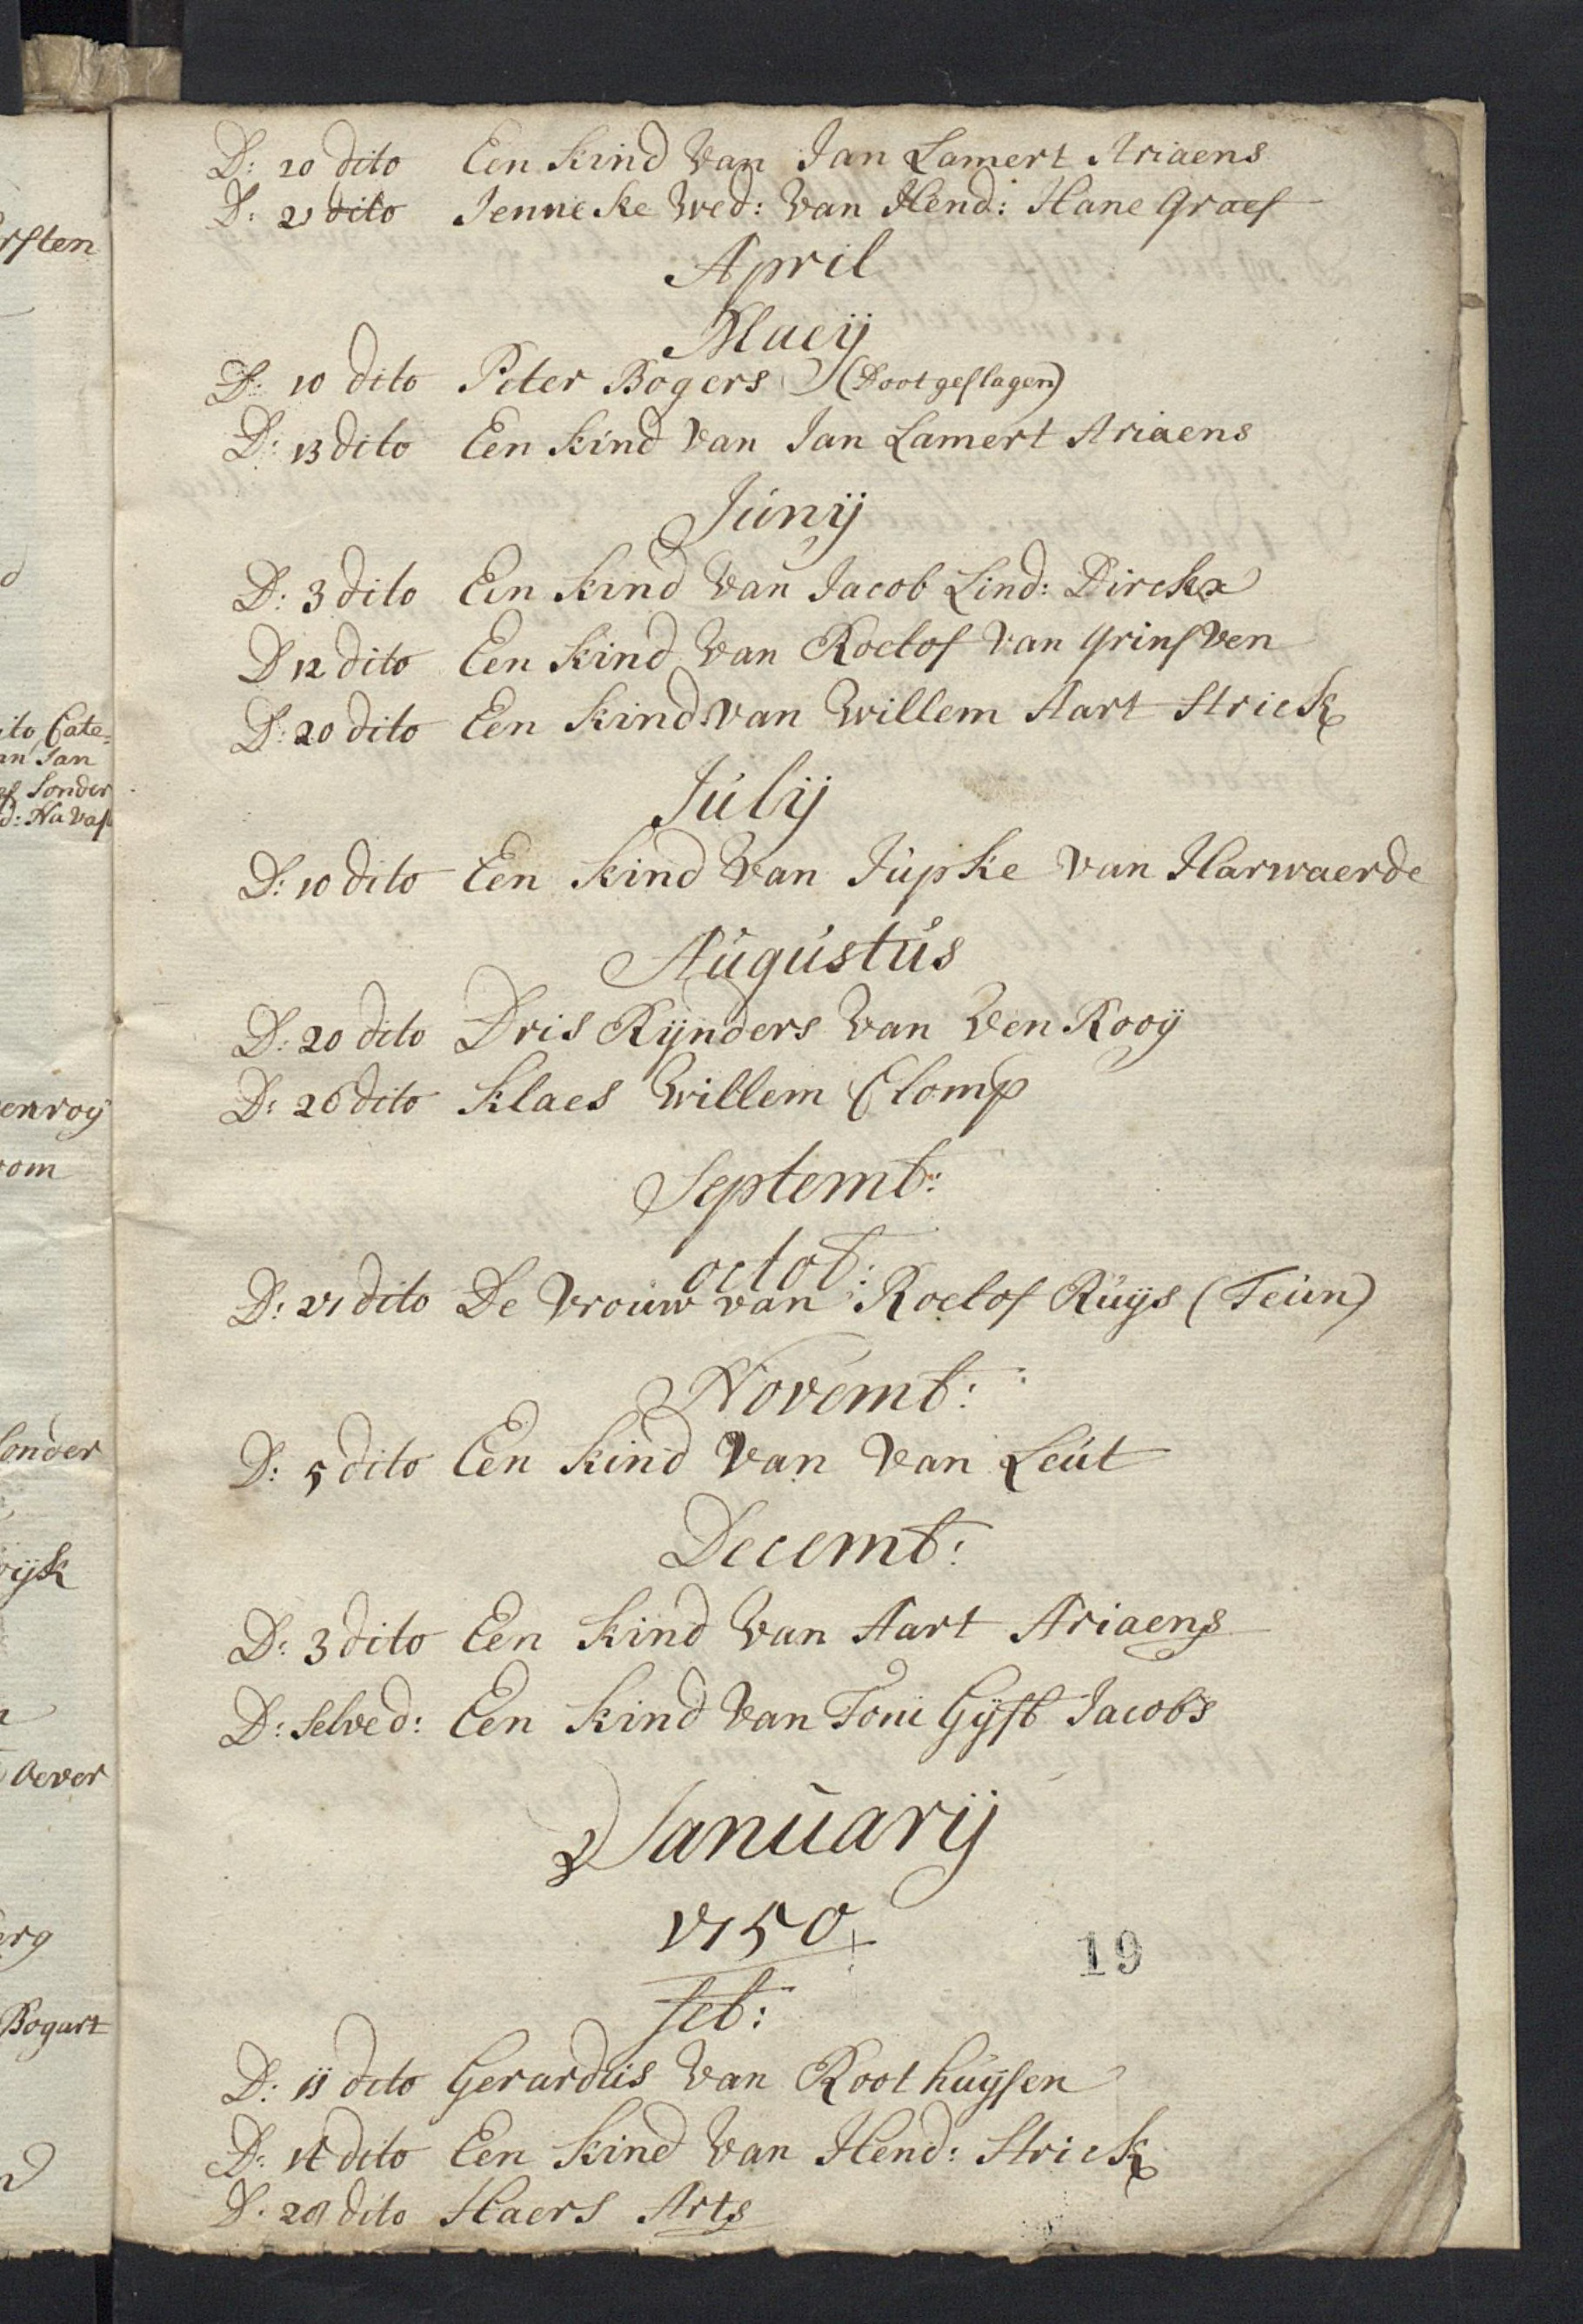 D: 20 dito Een kind van Jan Lamert Ariaens
D: 21 dito Jenneke wed: van Hend: Hane Graef
April
Maeij
D: 10 dito Peter Bogers (Dootgeslagen)
D: 13 dito Een kind van Jan Lamert Ariaens
Junij
D: 3 dito Een kind van Jacob Lind: Dirckx
D 12 dito Een kind van Roelof van Grinsven
D: 20 dito Een kind van Willem Aart Strick
Julij
D: 10 dito Een kind van Jupke van Harwaerde
Augustus
D: 20 dito Dris Rijnders van Ven Rooij
D: 26 dito Klaes Willem Clomp
Septemb:
octob:
D: 21 dito De Vrouw van Roelof Ruijs (Teun)
Novemb:
D: 5 dito Een kind van van Leut
Decemb:
D: 3 dito Een kind van Aart Ariaens
D: selved: Een kind van Toni Gijsb Jacobs
Januarij
1750
feb:
D: 11 dito Gerardus van Roothuijsen
D: 14 dito Een kind van Hend: Strick
D: dito Haers Arts
19
rsten
ito Cate=
an Jan
Sonder
d: Na vaf
enroij
om
Sonder
oijk
Oever
erg
Bogart